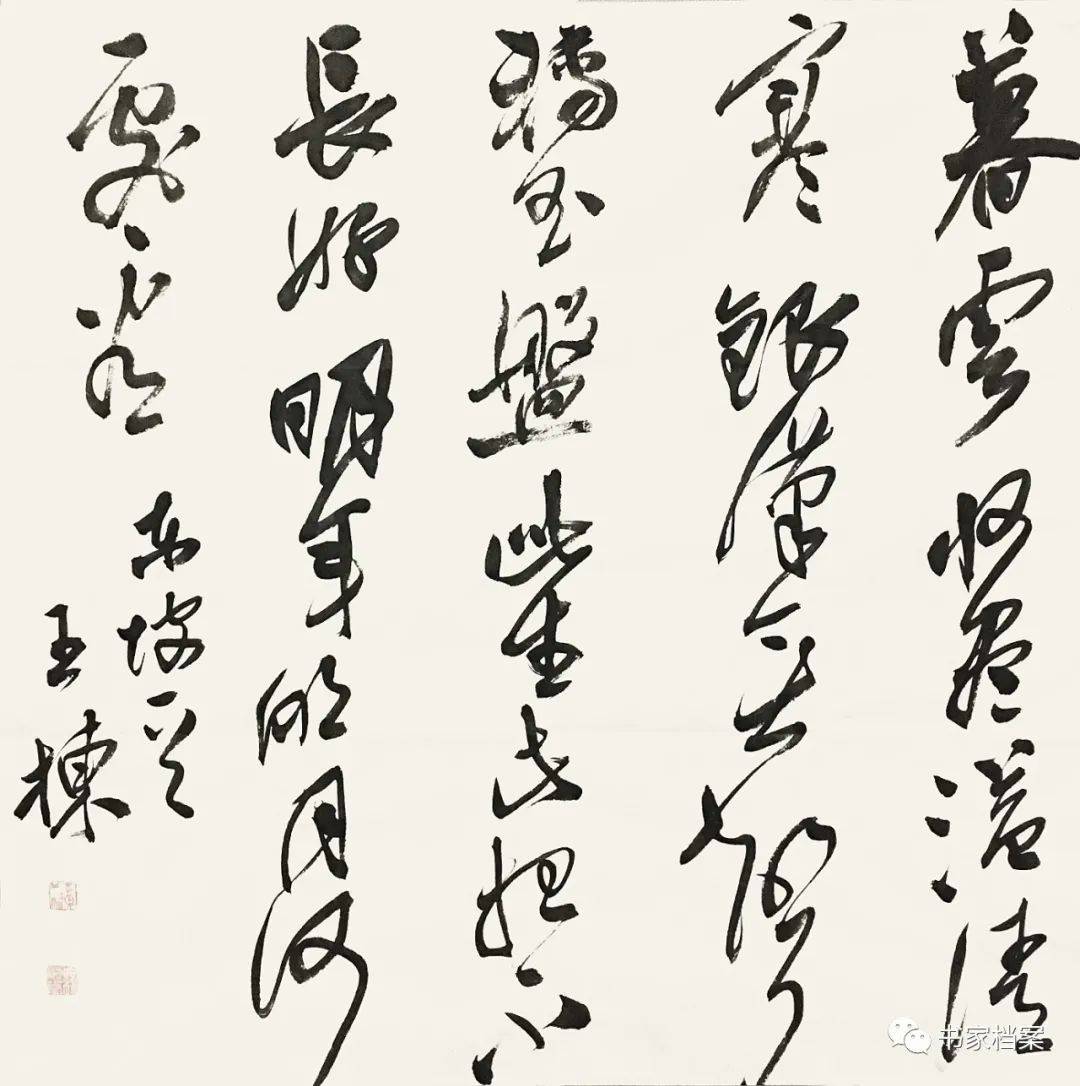 暮雲收盡溢清
寒銀漢無聲
轉玉盤此生此夜不
長好明年明月何
處看
東坡
王棟
书家档案